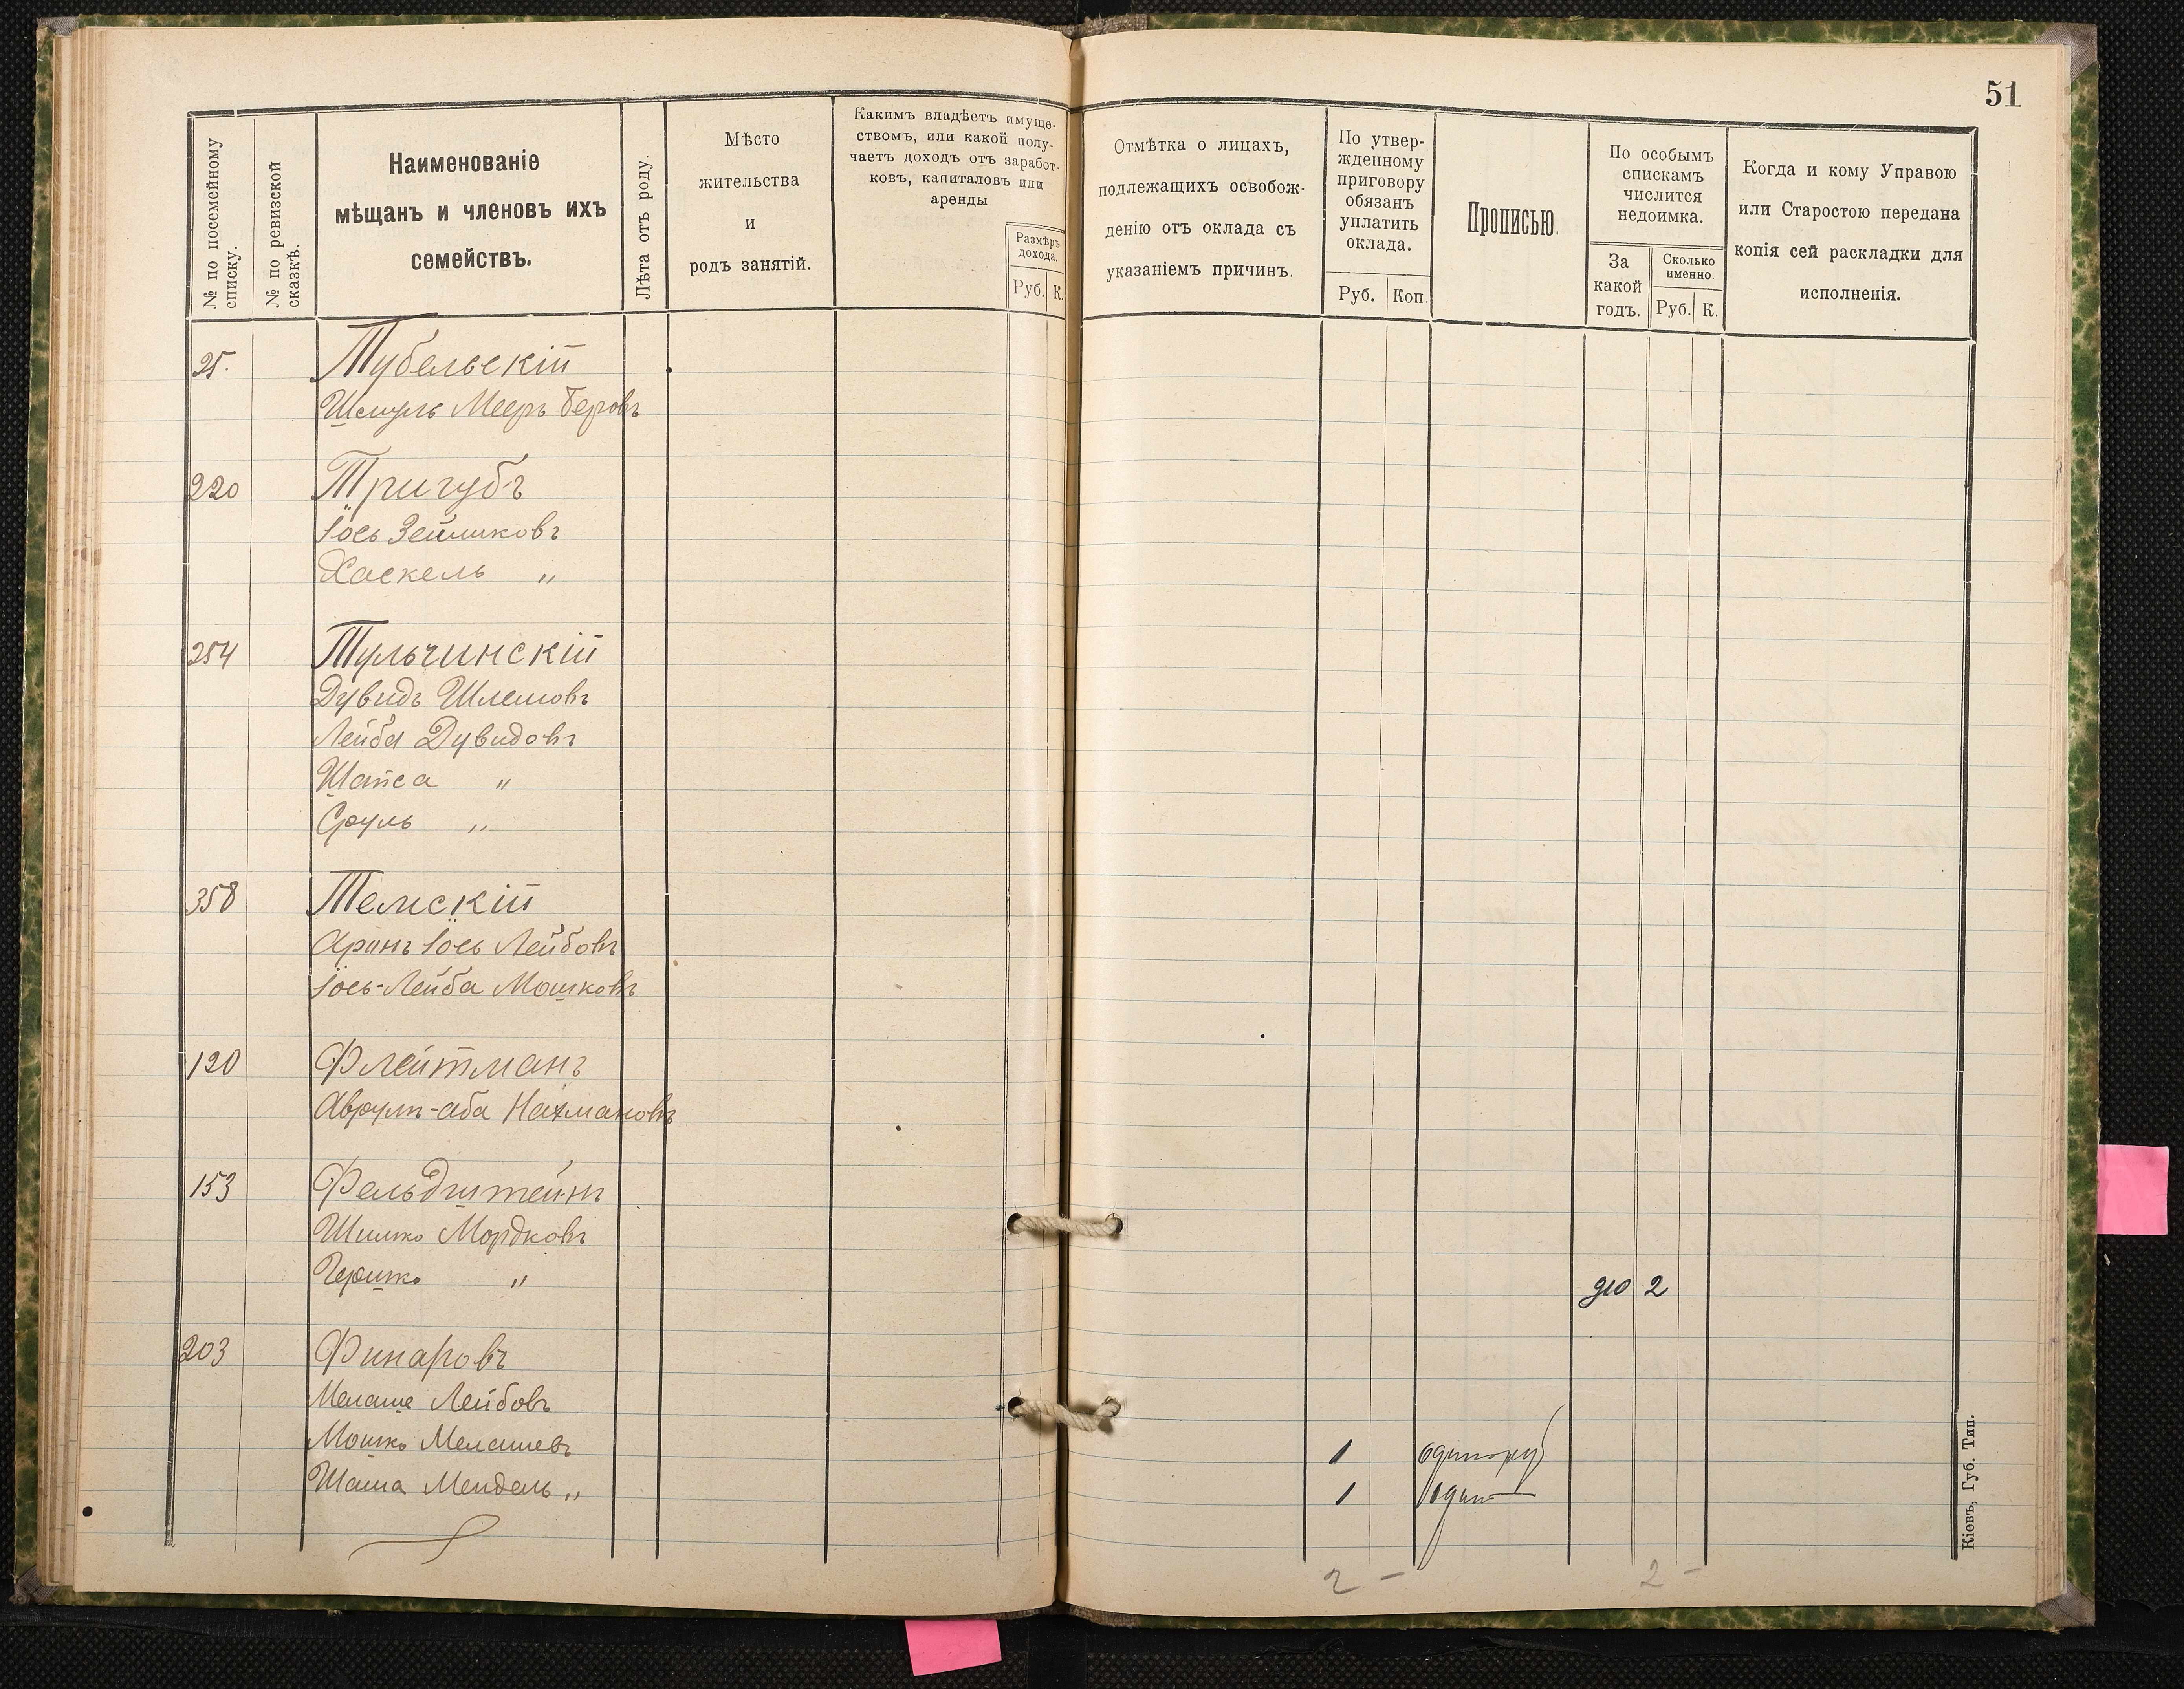 51
№ по посемейному списку.
№ по ревизской сказкѣ.
Наименованіе
мѣщанъ и членовъ ихъ
семействъ.
Лѣта отъ роду.
Мѣсто
жительства
и
родъ занятій.
Какимъ владѣетъ имуще-
ствомъ, или какой полу-
чаетъ доходъ отъ заработ-
ковъ, капиталовъ или
аренды
Размѣръ
дохода.
Руб. К.
Отмѣтка о лицахъ,
подлежащихъ освобож-
денію отъ оклада съ
указаніемъ причинъ.
По утвер-
жденному
приговору
обязанъ
уплатить
оклада.
Руб. Коп.
Прописью.
По особымъ
спискамъ
числится
недоимка.
За
какой
годъ.
Сколько
именно.
Руб. К.
Когда и кому Управою
или Старостою передана
копія сей раскладки для
исполненія.
25. Тубельскій
Шмуль Мееръ Беровъ
220 Тригубъ
Іось Зейликовъ
Хаскель „
254 Тульчинскій
Дувидъ Шлемовъ
Лейба Дувидовъ
Шапса „
Сруль „
358 Темскій
Аронъ Іось Лейбовъ
Іось-Лейба Мошковъ
120 Флейтманъ
Аврумъ-аба Нахмановъ
153 Фельдштейнъ
Шимко Мордковъ
Гершко „ 910 2
203 Финаровъ
Мелаше Лейбовъ
Мошко Мелашевъ 1 один руб
Шаша Мендель „ 1 один
2 - 2 -
Кіевъ, Губ. Тип.